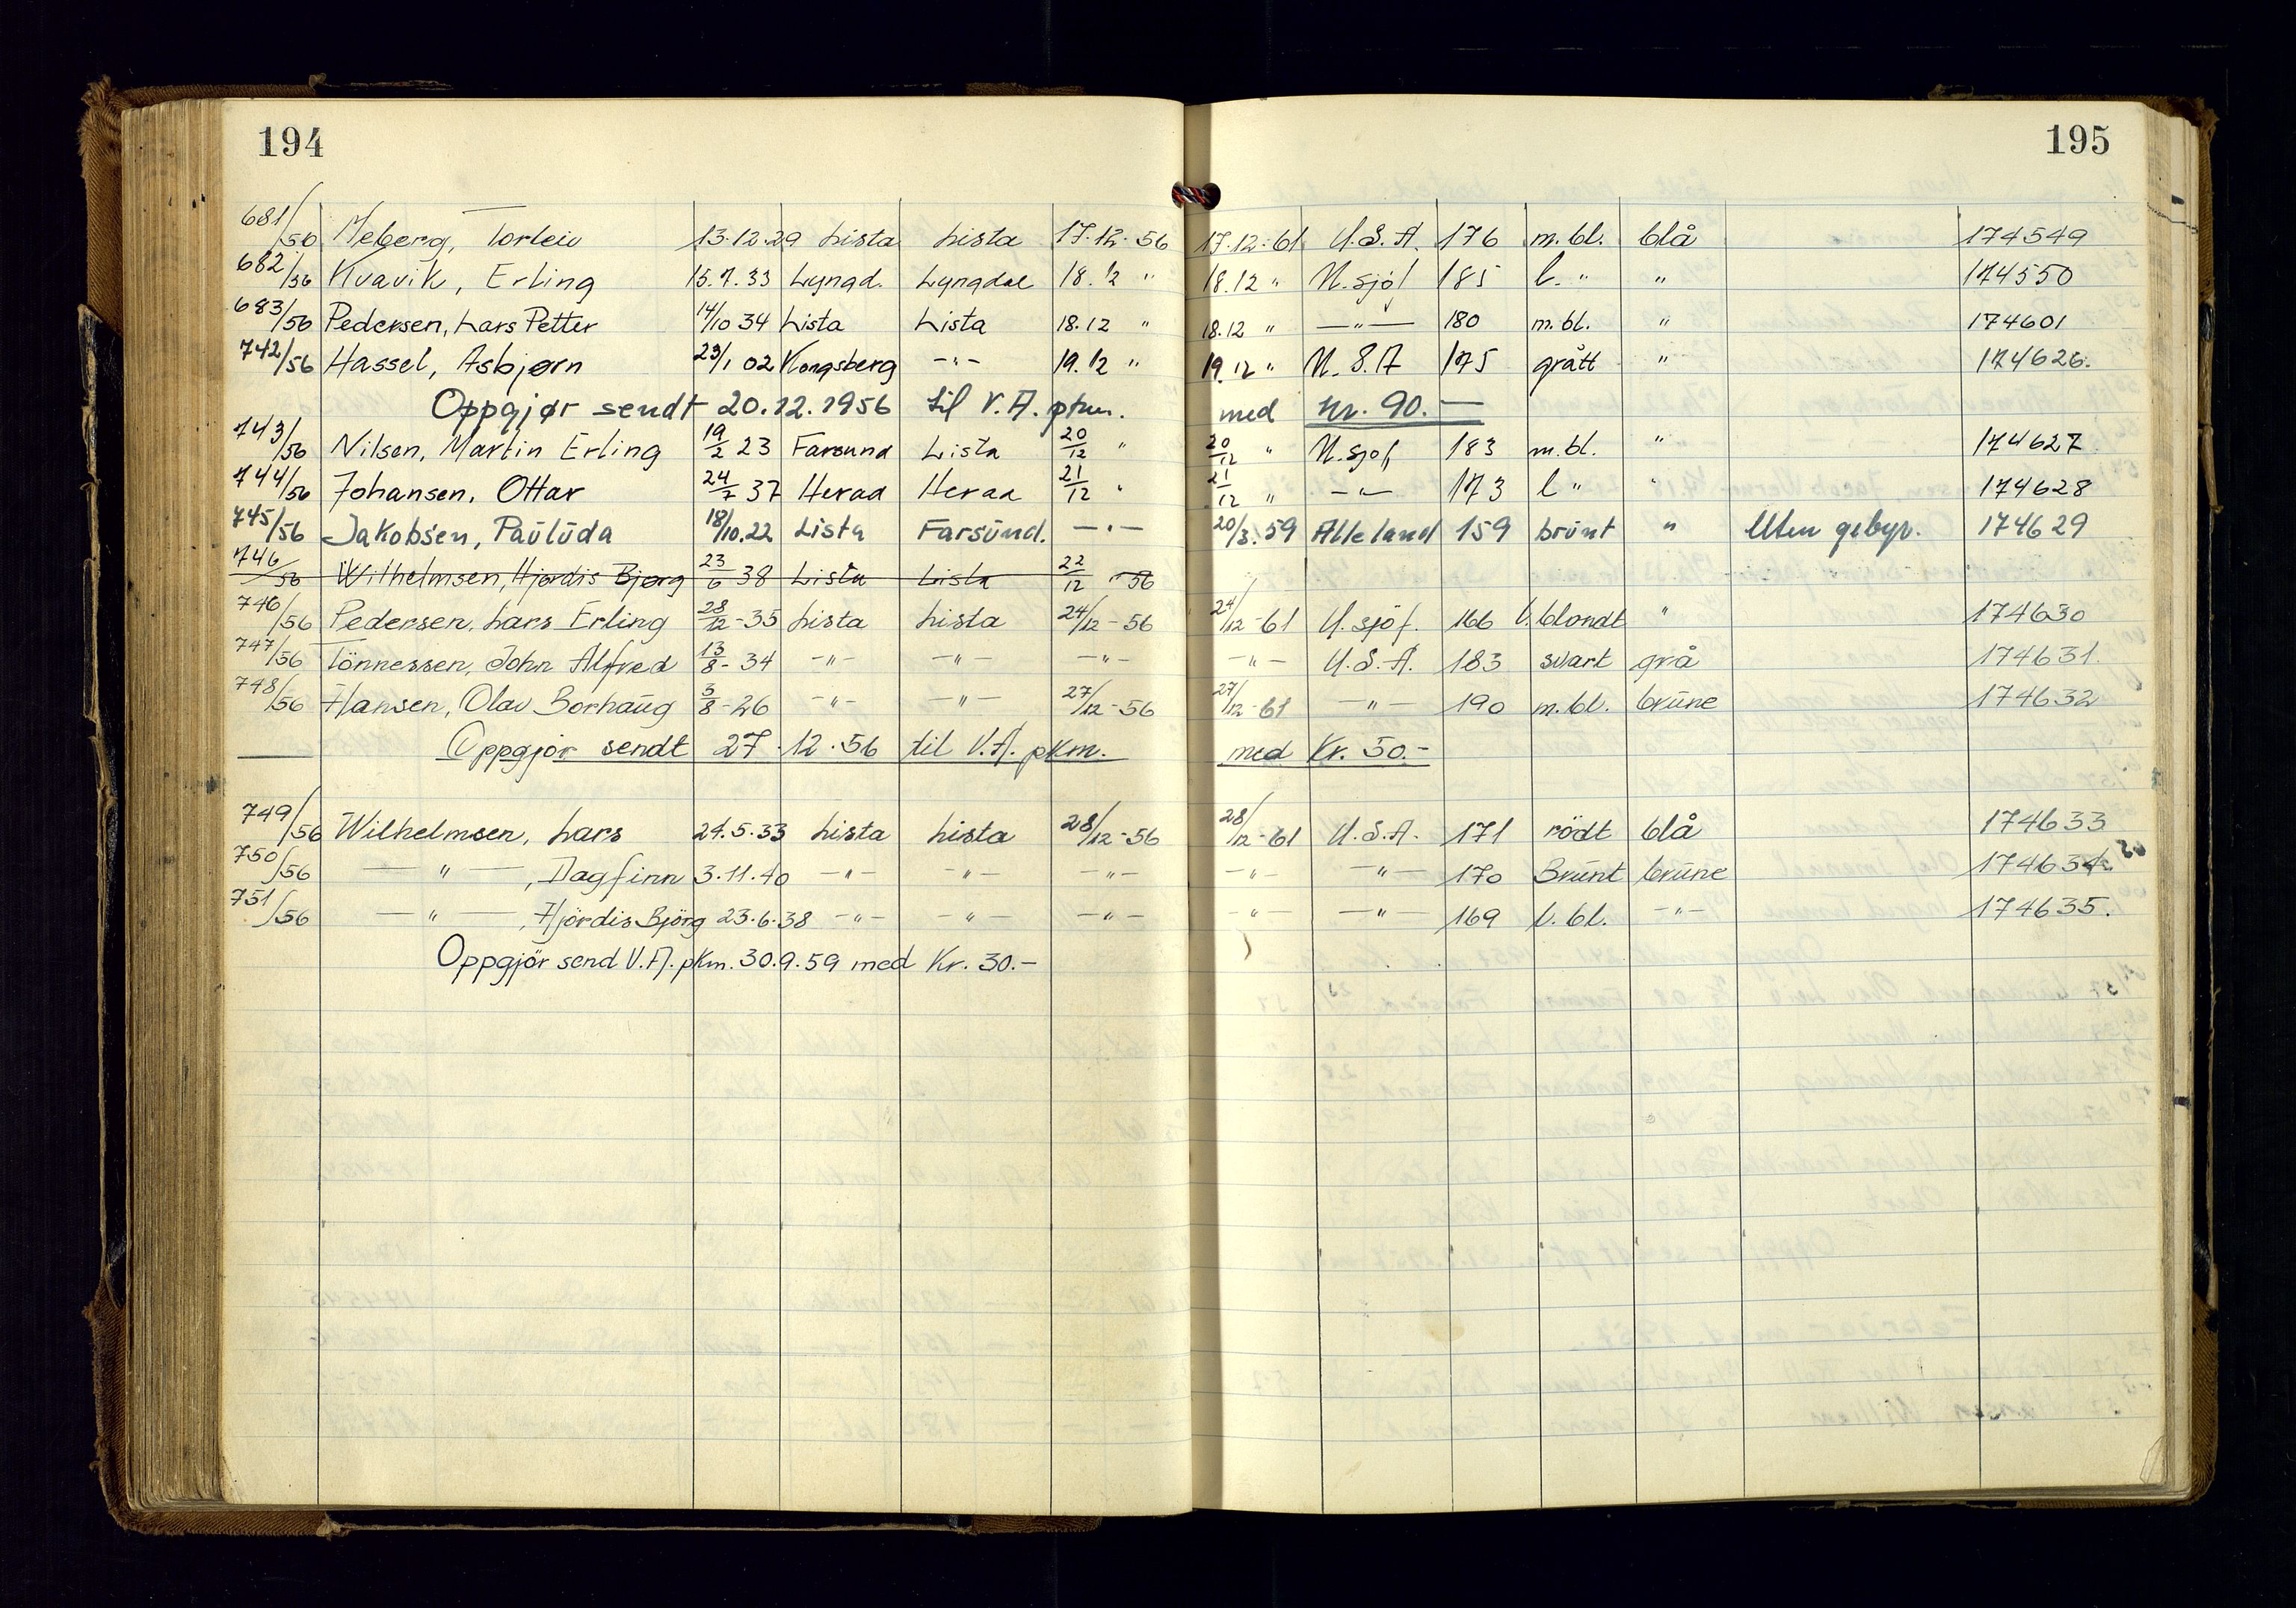 194
195
681/56 Meberg, Torleiv 13.12.29 Lista Lista 17.12.56 17.12.61 U.S.A. 176 m.bl. blå 174549
682/56 Kvavik, Erling 15.7.33 Lyngd. Lyngdal 18.12 " 18.12 " U.sjøf 185 l. " " 174550
683/56 Pedersen, Lars Petter 14/10 34 Lista Lista 18.12 " 18.12 " —"— 180 m.bl. " 174601
742/56 Hassel, Asbjørn 23/1 02 Kongsberg -"- 19.12 " 19.12 " U.S.A 175 grått " 174626.
Oppgjør sendt 20.12.1956 til V.A. pkm. med kr. 90.—
743/56 Nilsen, Martin Erling 19/2 23 Farsund Lista 20/12 " 20/12 " U.sjøf 183 m.bl. " 174627
744/56 Johansen, Ottar 24/7 37 Herad Herad 21/12 " 21/12 " -"- 173 l " " 174628
745/56 Jakobsen, Paulūda 18/10.22 Lista Farsūnd. —"— 20/3.59 Alle land 159 brūnt " Uten gebyr. 174629
746/56 Wilhelmsen, Hjørdis Bjørg 23/6 38 Lista Lista 22/12 - 56
746/56 Pedersen, Lars Erling 28/12-35 Lista Lista 24/12-56 24/12-61 U.sjöf. 166 l.blondt " 174630
747/56 Tönnessen, John Alfred 13/8-34 -"- -"- -"- -"- U.S.A. 183 svart grå 174631.
748/56 Hansen, Olav Borhaūg 3/8-26 -"- -"- 27/12-56 27/12-61 -"- 190 m.bl. brūne 174632
Oppgjör sendt 27.12.56 til V.A. pkm. med Kr. 50.-
749/56 Wilhelmsen, Lars 24.5.33 Lista Lista 28/12-56 28/12-61 U.S.A. 171 rödt blå 174633
750/56 —"—, Dagfinn 3.11.40 -"- -"- -"- -"- -"- 170 Brūnt brūne 174634
751/56 —"—, Hjördis Björg 23.6.38 -"- -"- -"- -"- -"- 169 l.bl. -"- 174635.
Oppgjör send V.A. pkm. 30.9.59 med Kr. 30.-